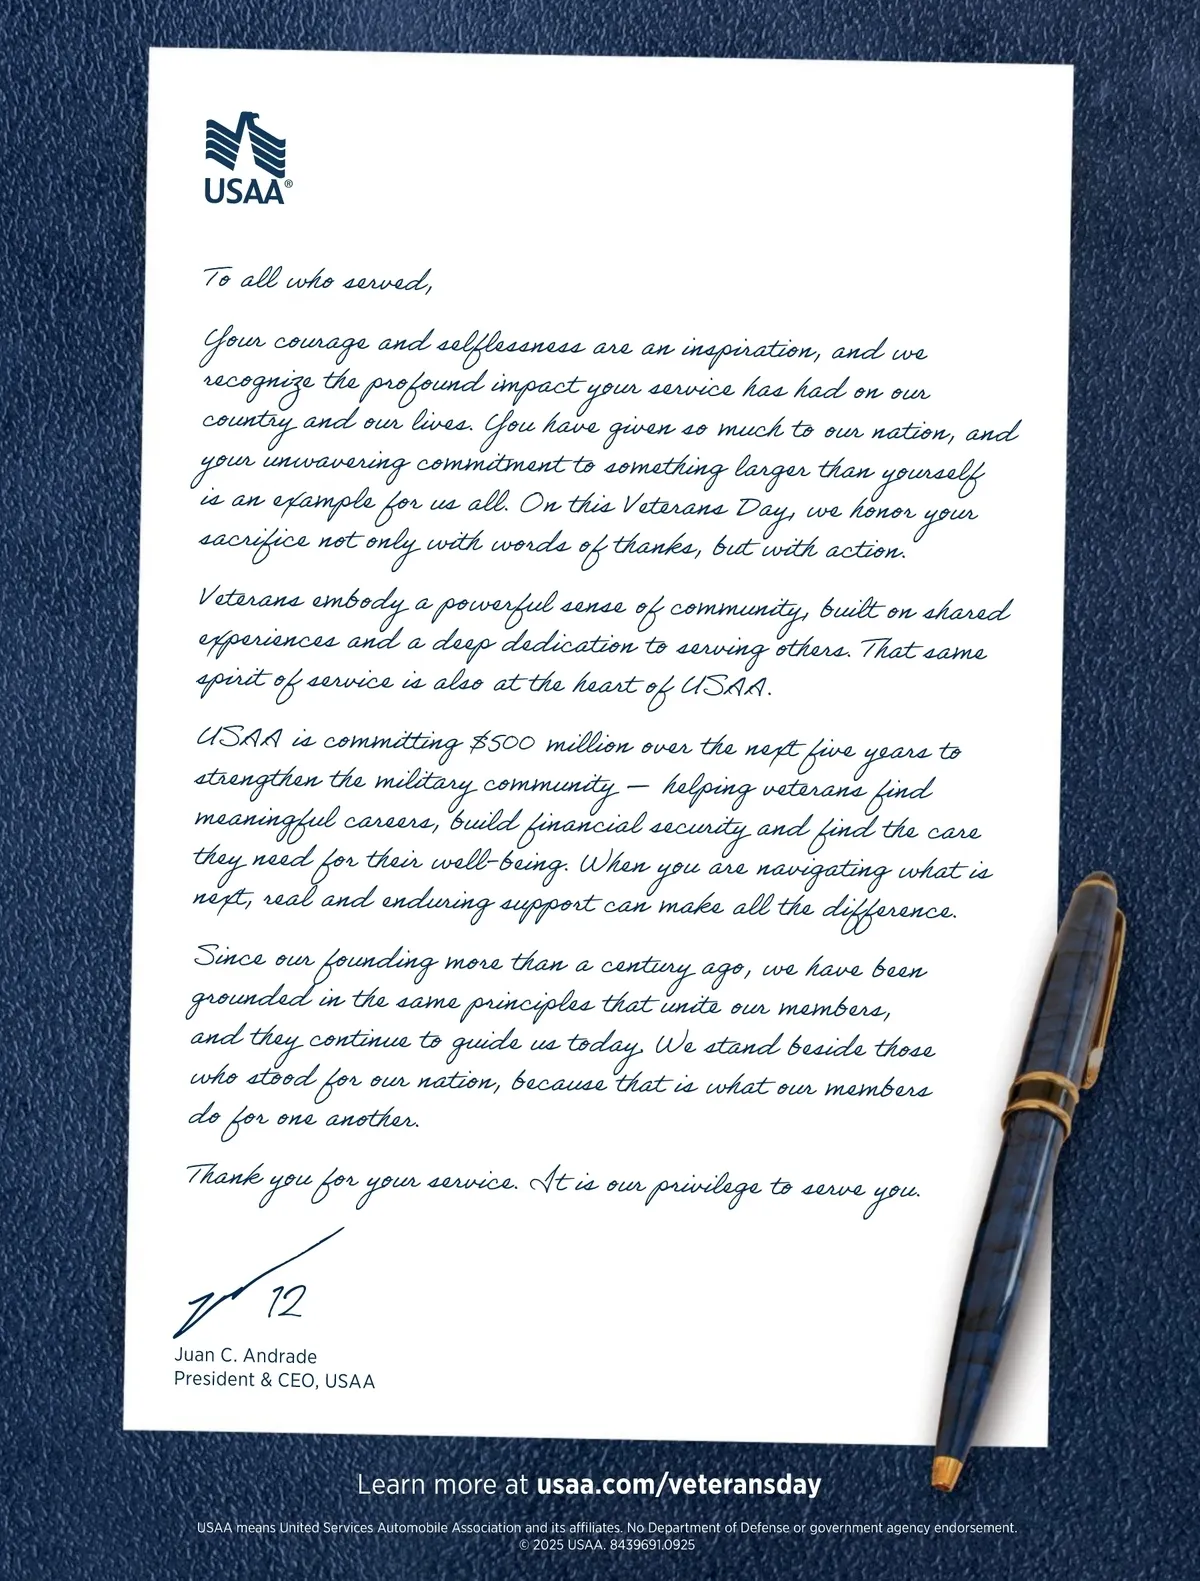 USAA®
To all who served,
Your courage and selflessness are an inspiration, and we
recognize the profound impact your service has had on our
country and our lives. You have given so much to our nation, and
your unwavering commitment to something larger than yourself
is an example for us all. On this Veterans Day, we honor your
sacrifice not only with words of thanks, but with action.
Veterans embody a powerful sense of community, built on shared
experiences and a deep dedication to serving others. That same
spirit of service is also at the heart of USAA.
USAA is committing $500 million over the next five years to
strengthen the military community — helping veterans find
meaningful careers, build financial security and find the care
they need for their well-being. When you are navigating what is
next, real and enduring support can make all the difference.
Since our founding more than a century ago, we have been
grounded in the same principles that unite our members,
and they continue to guide us today. We stand beside those
who stood for our nation, because that is what our members
do for one another.
Thank you for your service. It is our privilege to serve you.
Juan C. Andrade
President & CEO, USAA
Learn more at usaa.com/veteransday
USAA means United Services Automobile Association and its affiliates. No Department of Defense or government agency endorsement.
© 2025 USAA. 8439691.0925